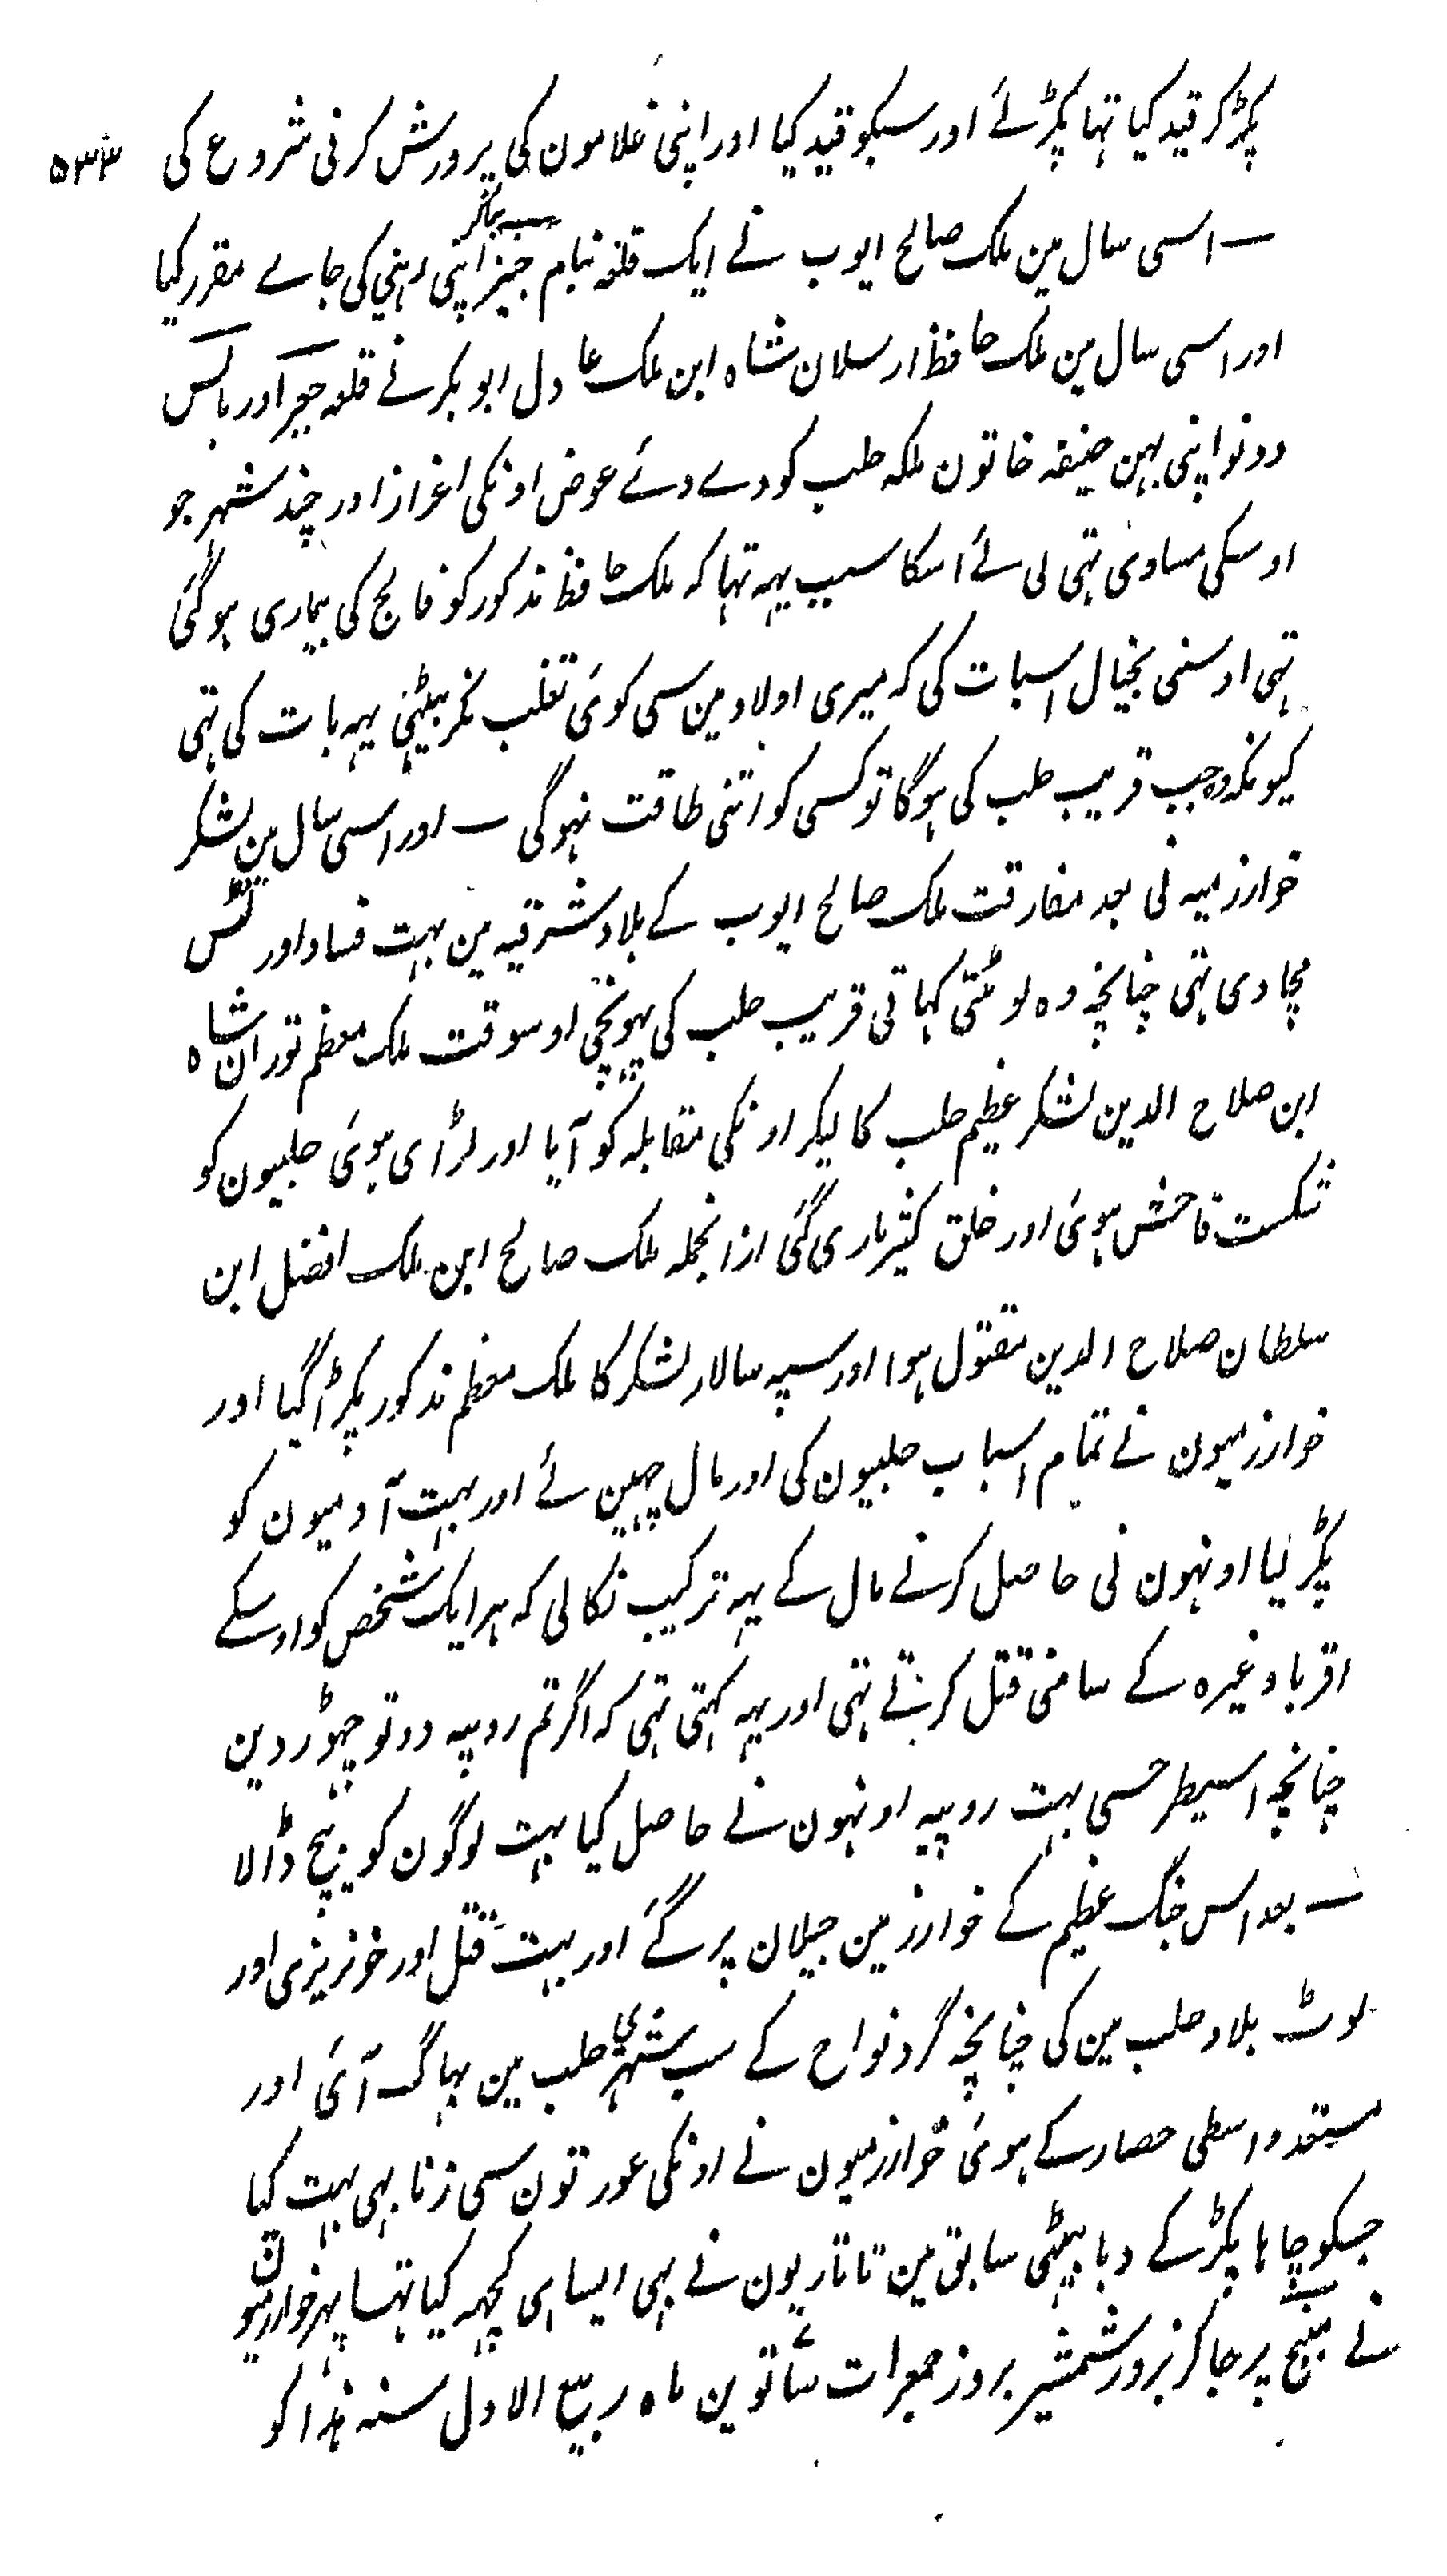 پکڑ کر قید کیا تہا پکڑے اور سبکو قید کیا اور اپنی غلامون کی پرورش کرنی شروع کی ۵۳۳
— اسی سال مین ملک صالح ایوب نے ایک قلعہ بنام جیزا بناکر اپنی رہنی کی جاے مقرر کیا
اور اسی سال مین ملک حافظ ارسلان شاہ ابن ملک عادل ابو بکر نے قلعہ جعبر اور بالس
دونو اپنی بہن ضیفہ خاتون ملکہ حلب کو دے دئے عوض اونکی اعزاز اور چند شہر جو
اوسکی مساوی تہی لی لئے اسکا سبب یہہ تہا کہ ملک حافظ مذکور کو فالج کی بیماری ہو گئی
تہی اوسنی بخیال اسبات کی کہ میری اولاد مین سی کوئی تغلب نکر بیٹہی یہہ بات کی تہی
کیونکہ وہ جب قریب حلب کی ہوگا تو کسی کو اتنی طاقت نہوگی — اور اسی سال مین لشکر
خوارزمیہ نی بعد مفارقت ملک صالح ایوب کے بلاد شرقیہ مین بہت فساد اور لٹس
مچا دی تہی چنانچہ وہ لوٹتی کہاتی قریب حلب کی پہونچی اوسوقت ملک معظم توران شاہ
ابن صلاح الدین لشکر عظیم حلب کا لیکر اونکی مقابلہ کو آیا اور لڑائی ہوئی حلبیون کو
شکست فاحش ہوئی اور خلق کثیر ماری گئی ازانجملہ ملک صالح ابن ملک افضل ابن
سلطان صلاح الدین مقتول ہوا اور سپہ سالار لشکر کا ملک معظم مذکور پکڑا گیا اور
خوارزمیون نے تمام اسباب حلبیون کی اور مال چہین لئے اور بہت آدمیون کو
پکڑ لیا اونہون نی حاصل کرنے مال کے یہہ ترکیب نکالی کہ ہر ایک شخص کو اوسکے
اقربا وغیرہ کے سامنی قتل کرتے تہی اور یہہ کہتی تہی کہ اگر تم روپیہ دو تو چہوڑ دین
چنانچہ اسیطرحسی بہت روپیہ اونہون نے حاصل کیا بہت لوگون کو بیچ ڈالا
— بعد اس جنگ عظیم کے خوارزمین جیلان پر گے اور بہت قتل اور خونریزی اور
لوٹ بلاد حلب مین کی چنانچہ گرد نواح کے سب شہری حلب مین بہاگ آئی اور
مستعد واسطی حصار کے ہوئی خوارزمیون نے اونکی عورتون سی زنا بہی بہت کیا
جسکو چاہا پکڑ کے دبا بیٹہی سابق مین تاتاریون نے بہی ایسا ہی کچہہ کیا تہا پہر خوارزمیون
نے منبج پر جا کر بزور شمشیر بروز جمعرات ساتوین ماہ ربیع الاول سنہ ہذا کو